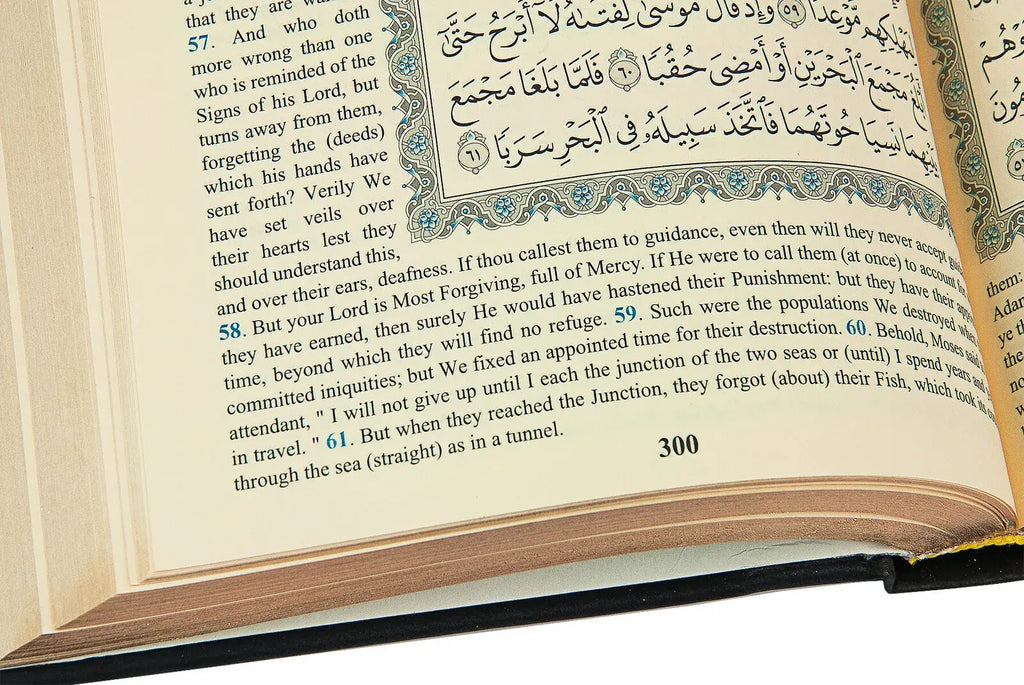 that they are
57. And who doth
more wrong than one
who is reminded of the
Signs of his Lord, but
turns away from them,
forgetting the (deeds)
which his hands have
sent forth? Verily We
have set veils over
their hearts lest they
should understand this,
مَّوْعِدًا ٥٩ وَإِذْ قَالَ مُوسَىٰ لِفَتَىٰهُ لَآ أَبْرَحُ حَتَّىٰٓ
مَجْمَعَ ٱلْبَحْرَيْنِ أَوْ أَمْضِىَ حُقُبًا ٦٠ فَلَمَّا بَلَغَا مَجْمَعَ
بَيْنِهِمَا نَسِيَا حُوتَهُمَا فَٱتَّخَذَ سَبِيلَهُۥ فِى ٱلْبَحْرِ سَرَبًا ٦١
and over their ears, deafness. If thou callest them to guidance, even then will they never accept
58. But your Lord is Most Forgiving, full of Mercy. If He were to call them (at once) to account
they have earned, then surely He would have hastened their Punishment: but they have their
time, beyond which they will find no refuge. 59. Such were the populations We destroyed
committed iniquities; but We fixed an appointed time for their destruction. 60. Behold, Moses
attendant, " I will not give up until I each the junction of the two seas or (until) I spend years
in travel. " 61. But when they reached the Junction, they forgot (about) their Fish, which took
through the sea (straight) as in a tunnel.
300
them: